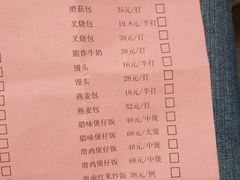 蘑菇包 35元/打 □
叉烧包 19.8元/半打 □
叉烧包 38元/打 □
脆炸牛奶 38元/打 □
馒头 16元/半打 □
馒头 28元/打 □
燕麦包 18元/半打 □
燕麦包 32元/打 □
腊味煲仔饭 48元/中煲 □
腊味煲仔饭 68元/大煲 □
滑鸡煲仔饭 48元/中煲 □
滑鸡煲仔饭 68元/大煲 □
海南红米炒饭 38元/例 □